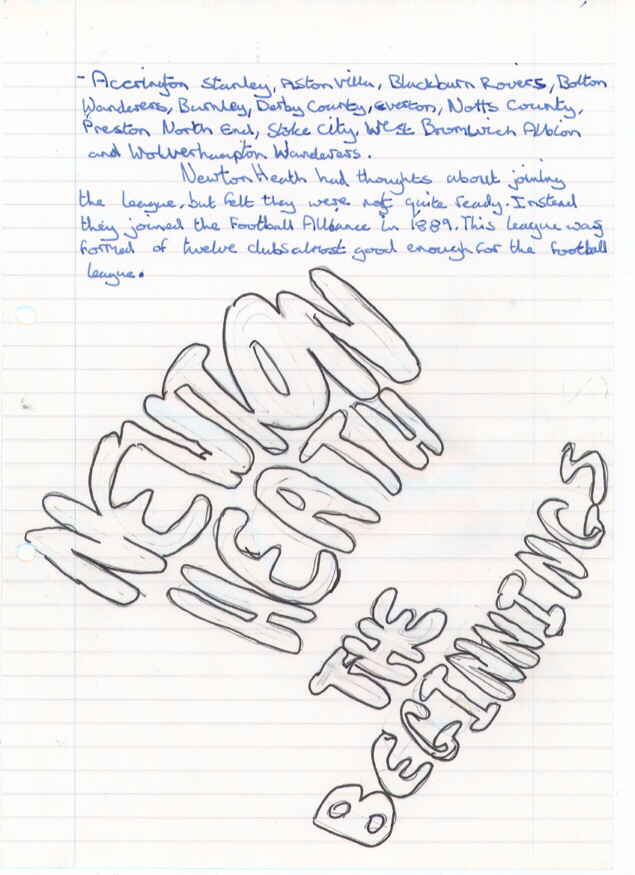 - Accrington Stanley, Aston Villa, Blackburn Rovers, Bolton
Wanderers, Burnley, Derby County, Everton, Notts County,
Preston North End, Stoke City, West Bromwich Albion
and Wolverhampton Wanderers.
Newton Heath had thoughts about joining
the league, but felt they were not quite ready. Instead
they joined the Football Alliance in 1889. This league was
formed of twelve clubs almost good enough for the football
league.
NEWTON
HEATH
THE
BEGINNINGS